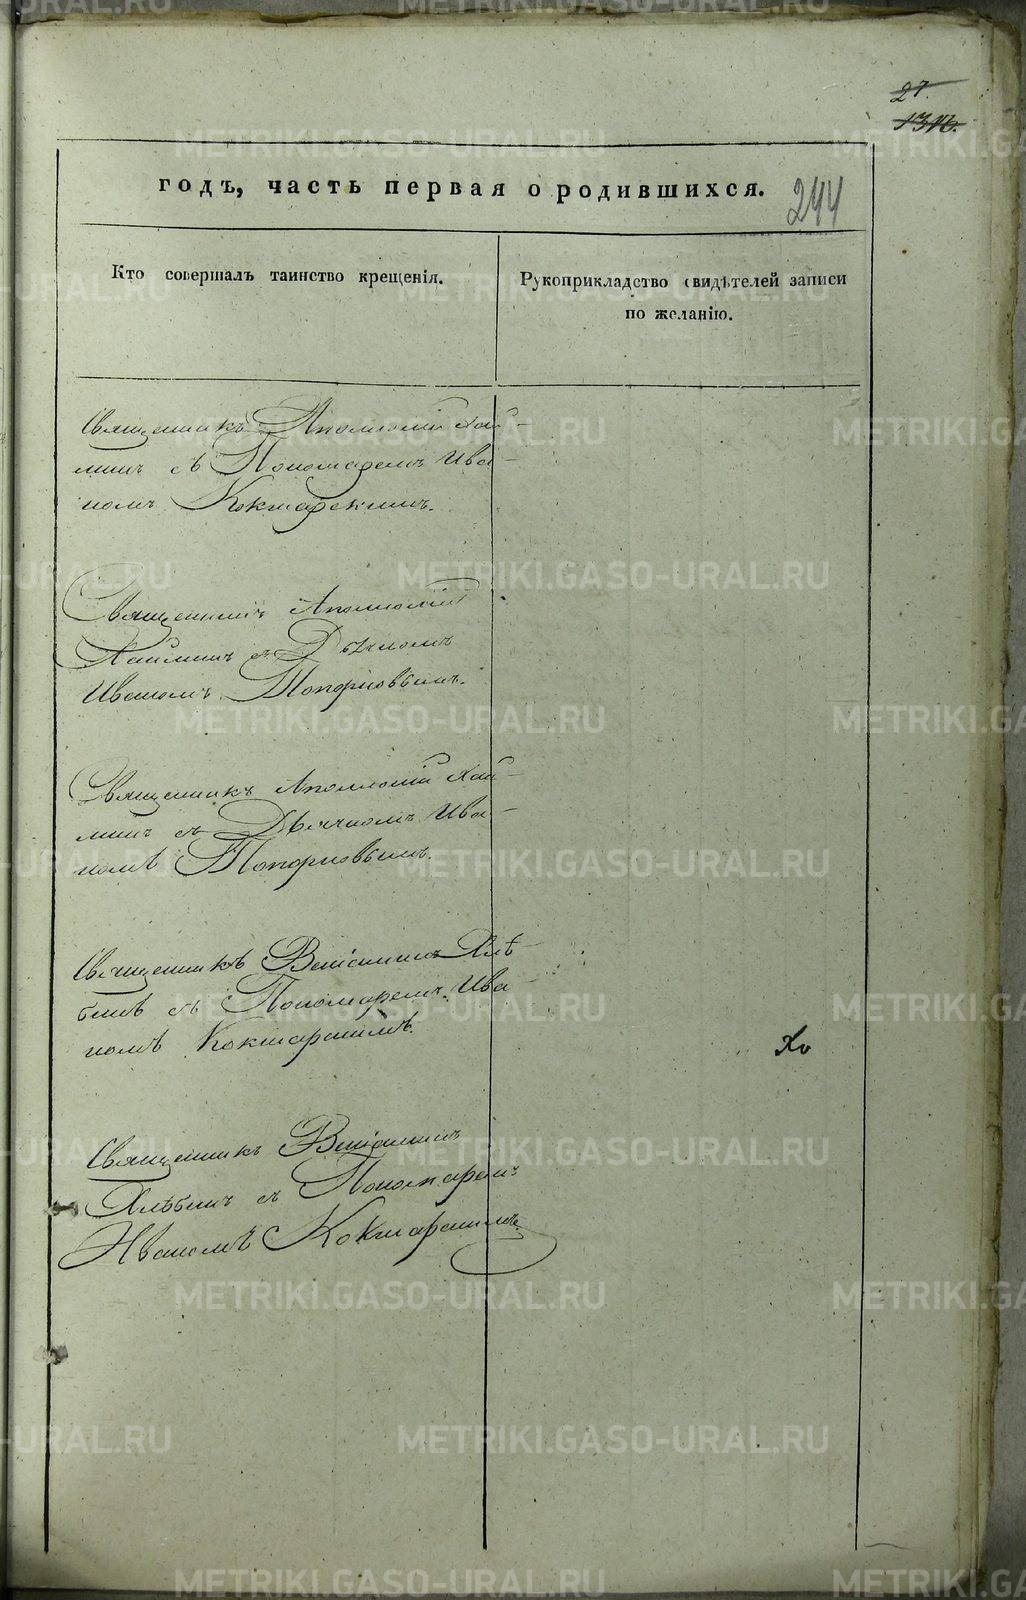 27.
1316.
годъ, часть первая о родившихся.
244
Кто совершалъ таинство крещенія.
Рукоприкладство свидѣтелей записи
по желанію.
Священникъ Аполлоній Хай-
минъ съ Пономаремъ Ива-
номъ Кокшарскимъ.
Священникъ Аполлоній
Хайминъ съ Дьячкомъ
Иваномъ Топорковымъ.
Священникъ Аполлоній Хай-
минъ съ Дьячкомъ Ива-
номъ Топорковымъ.
Священникъ Веніаминъ Хлѣ-
бинъ съ Пономаремъ Ива-
номъ Кокшарскимъ.
Священникъ Веніаминъ
Хлѣбинъ съ Пономаремъ
Иваномъ Кокшарскимъ.
METRIKI.GASO-URAL.RU